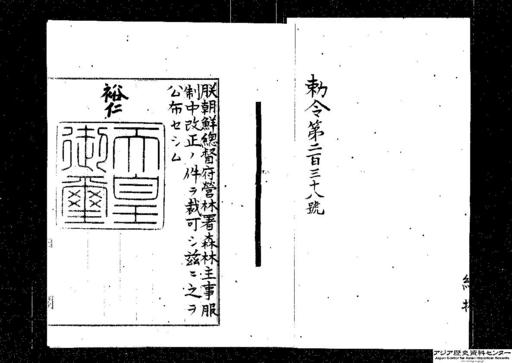 勅令第二百三十八號
朕朝鮮總督府營林署森林主事服
制中改正ノ件ヲ裁可シ茲ニ之ヲ
公布セシム
裕仁
天皇
御璽
アジア歴史資料センター
Japan Center for Asian Historical Records